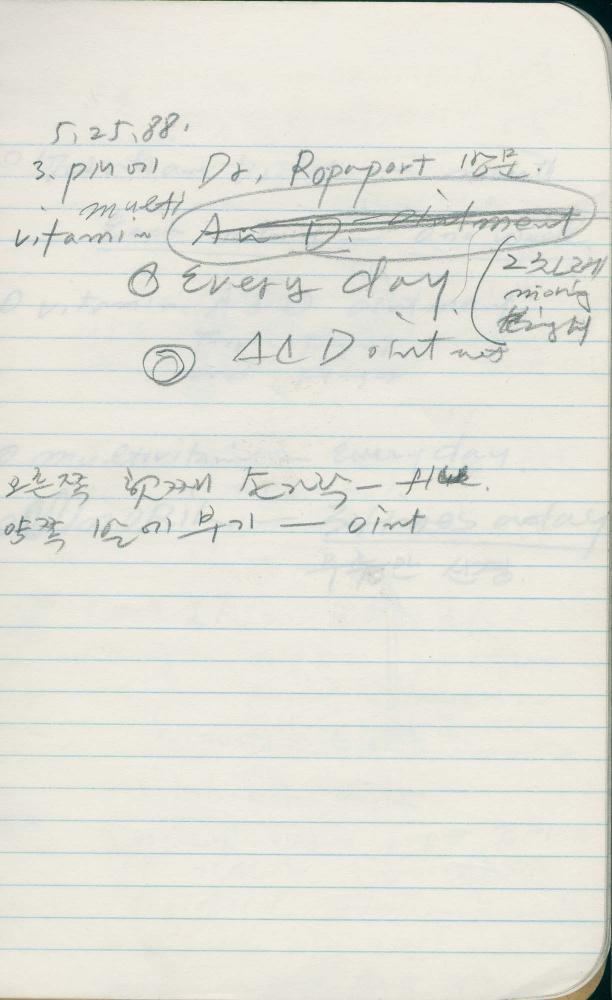 5.25.88.
3. pm에 Dr. Ropaport 방문.
multi
vitamin A n D. ointment
① Every day. 2차례
morning
② A & D ointment
오른쪽 첫째 손가락 —
양쪽 입에 부기 — oint